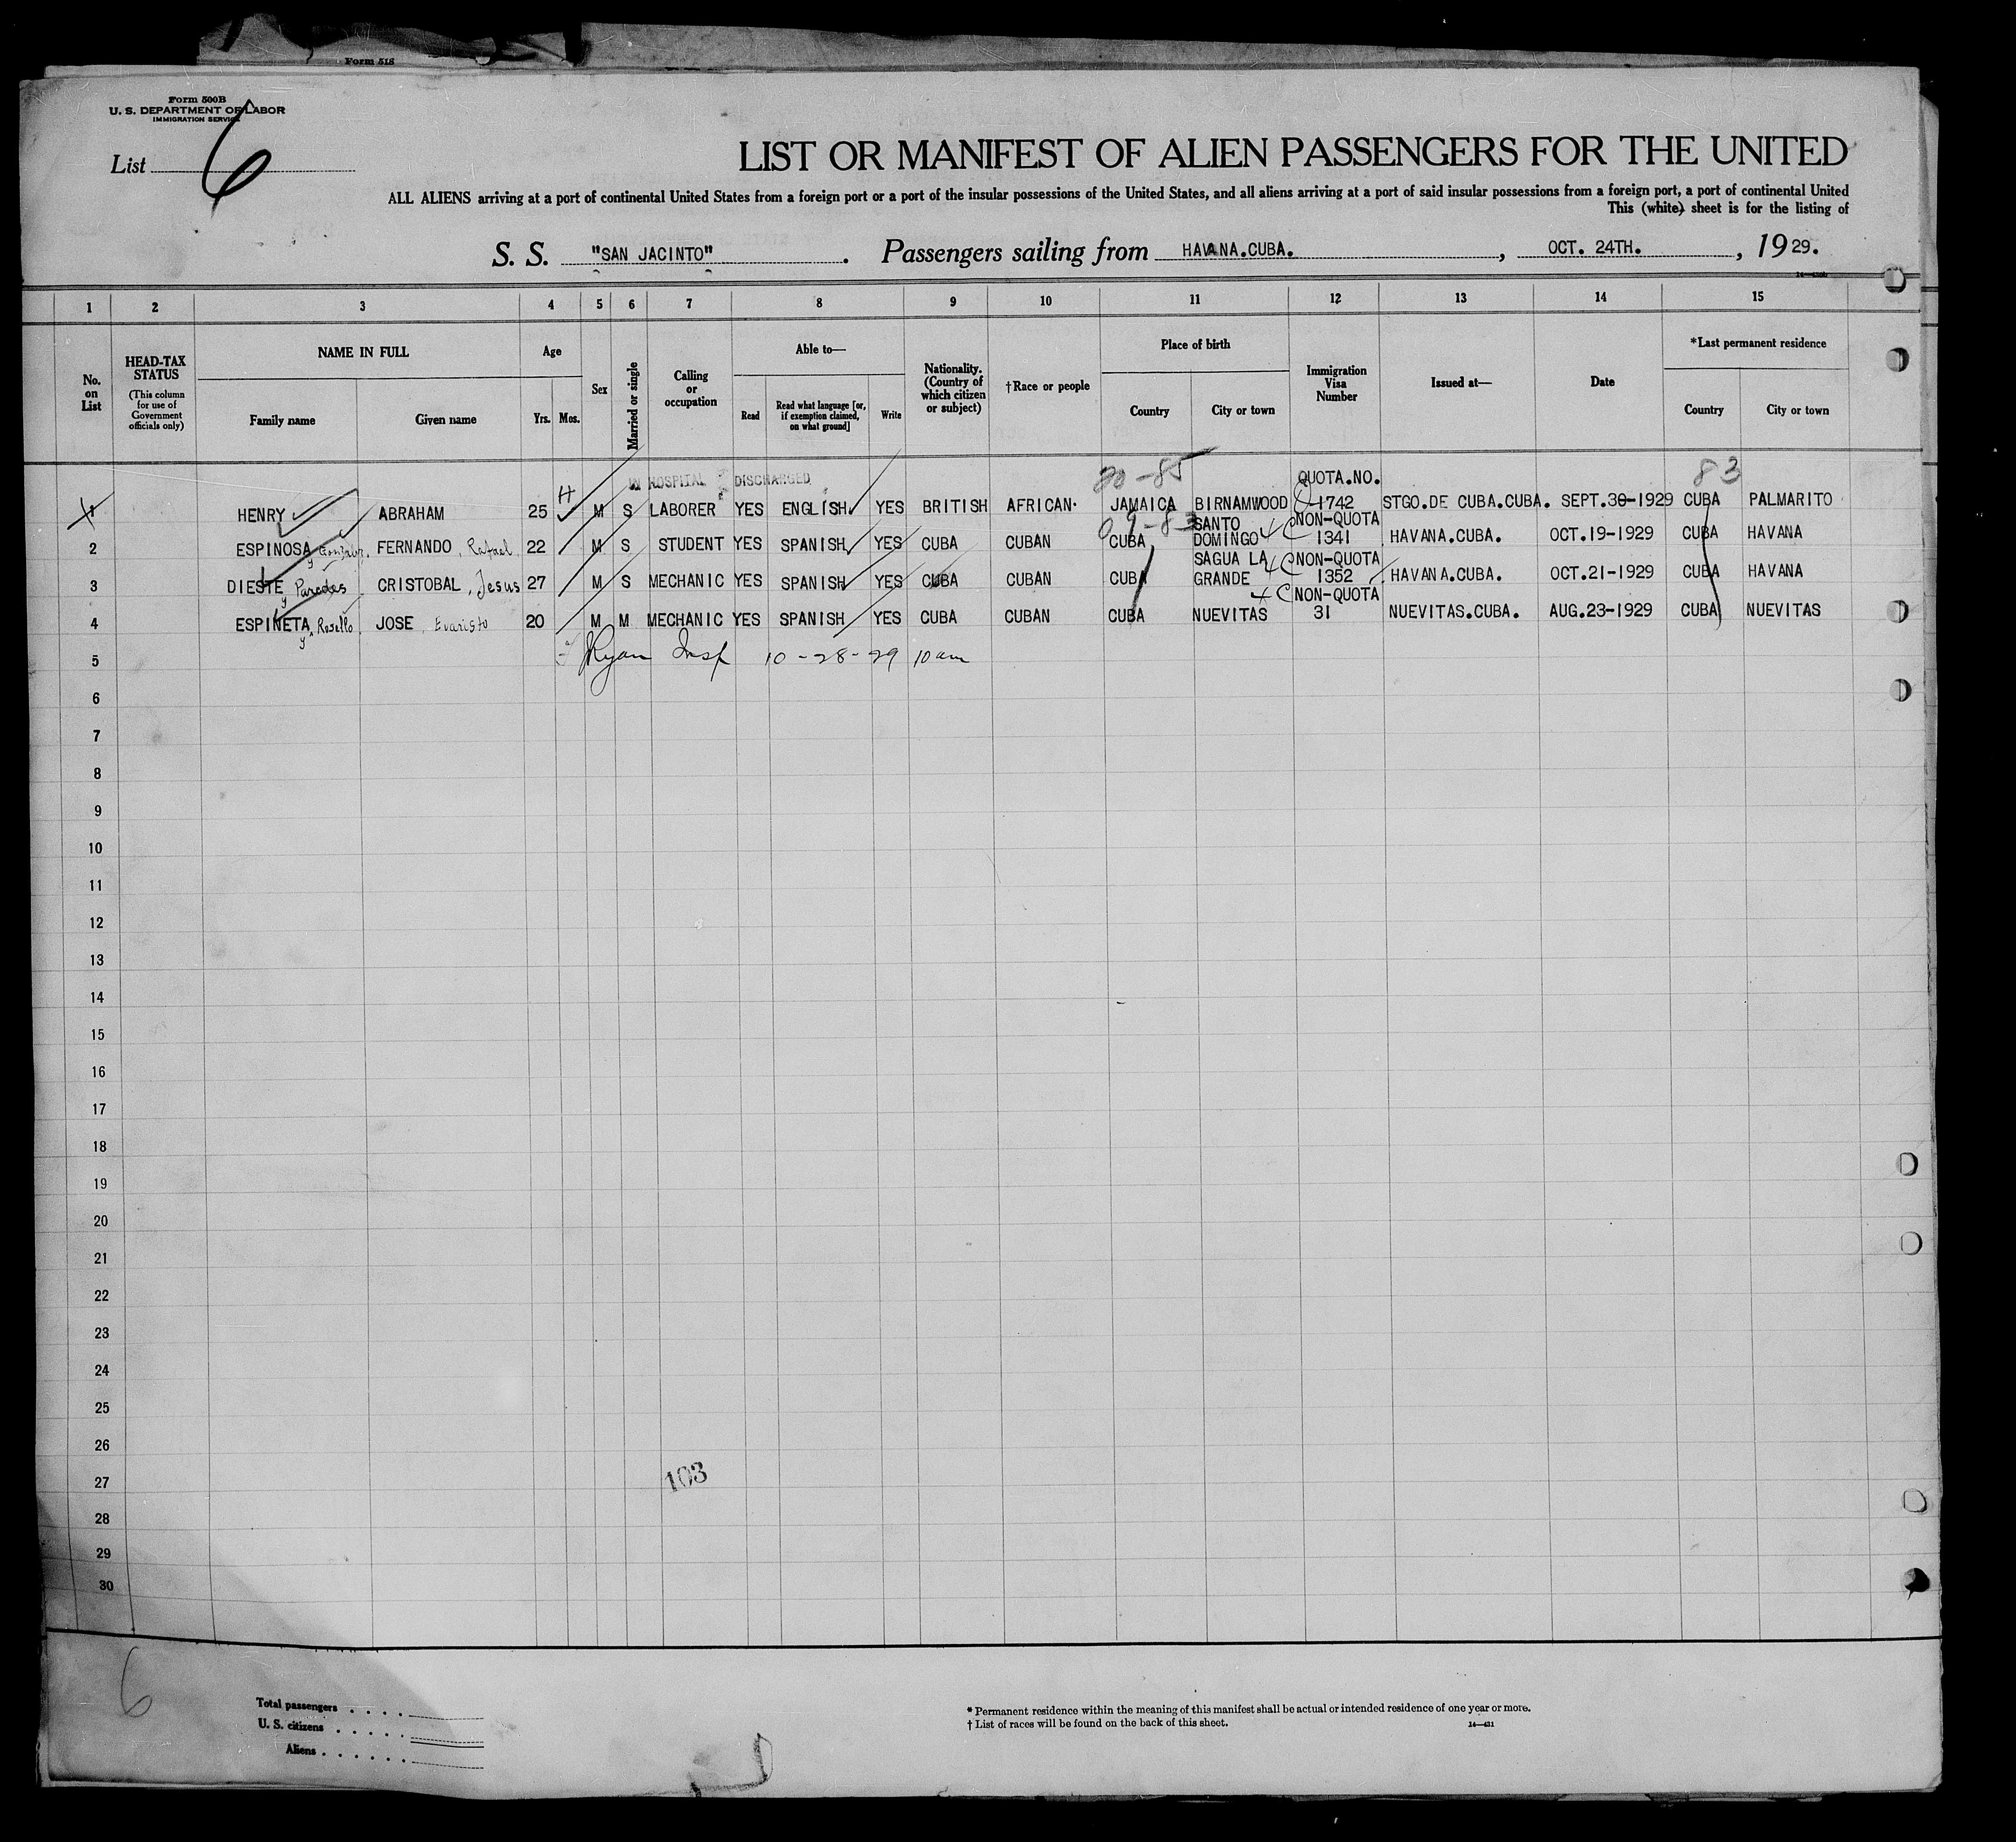 Form 518
Form 500B
U. S. DEPARTMENT OF LABOR
IMMIGRATION SERVICE
List 6
LIST OR MANIFEST OF ALIEN PASSENGERS FOR THE UNITED
ALL ALIENS arriving at a port of continental United States from a foreign port or a port of the insular possessions of the United States, and all aliens arriving at a port of said insular possessions from a foreign port, a port of continental United
This (white) sheet is for the listing of
S. S. "SAN JACINTO". Passengers sailing from HAVANA.CUBA., OCT. 24TH., 1929.
1 2 3 4 5 6 7 8 9 10 11 12 13 14 15
No. on List
HEAD-TAX STATUS
(This column for use of Government officials only)
NAME IN FULL
Family name Given name
Age
Yrs. Mos.
Sex
Married or single
Calling or occupation
Able to—
Read Read what language [or, if exemption claimed, on what ground] Write
Nationality. (Country of which citizen or subject)
†Race or people
Place of birth
Country City or town
Immigration Visa Number
Issued at—
Date
*Last permanent residence
Country City or town
IN HOSPITAL DISCHARGED
30-85 QUOTA.NO. 83
1 HENRY ABRAHAM 25 H M S LABORER YES ENGLISH YES BRITISH AFRICAN. JAMAICA BIRNAMWOOD Q 1742 STGO.DE CUBA.CUBA. SEPT.30-1929 CUBA PALMARITO
09-83 SANTO NON-QUOTA
2 ESPINOSA y Gonzalez, FERNANDO, Rafael 22 M S STUDENT YES SPANISH YES CUBA CUBAN CUBA DOMINGO 4C 1341 HAVANA.CUBA. OCT.19-1929 CUBA HAVANA
SAGUA LA 4C NON-QUOTA
3 DIESTE y Paredes CRISTOBAL, Jesus 27 M S MECHANIC YES SPANISH YES CUBA CUBAN CUBA GRANDE 1352 HAVANA.CUBA. OCT.21-1929 CUBA HAVANA
4C NON-QUOTA
4 ESPINETA y Rosello, JOSE Evaristo 20 M M MECHANIC YES SPANISH YES CUBA CUBAN CUBA NUEVITAS 31 NUEVITAS.CUBA. AUG.23-1929 CUBA NUEVITAS
5 Ryan Insp 10-28-29 10am
6
7
8
9
10
11
12
13
14
15
16
17
18
19
20
21
22
23
24
25
26
27 103
28
29
30
6
Total passengers
U. S. citizens
Aliens
* Permanent residence within the meaning of this manifest shall be actual or intended residence of one year or more.
† List of races will be found on the back of this sheet.
14—431